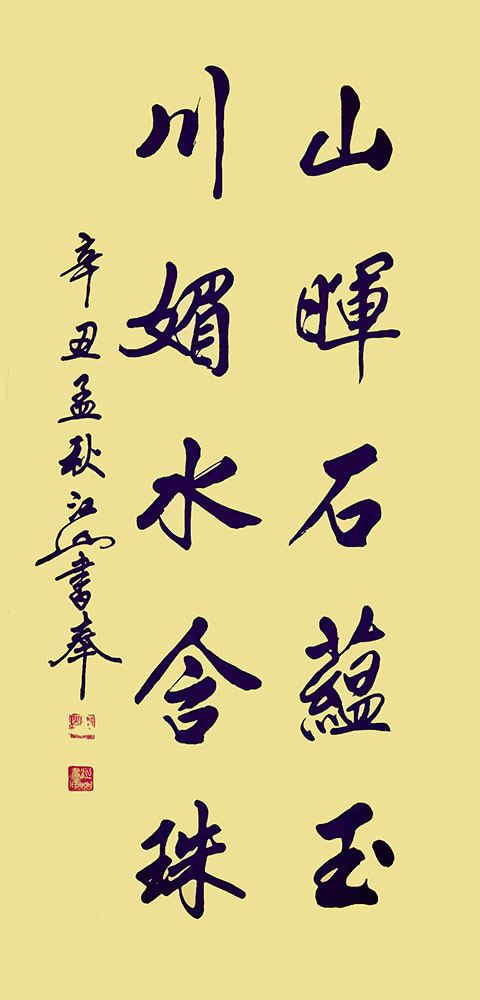 山暉石蘊玉
川媚水含珠
辛丑孟秋江山書奉